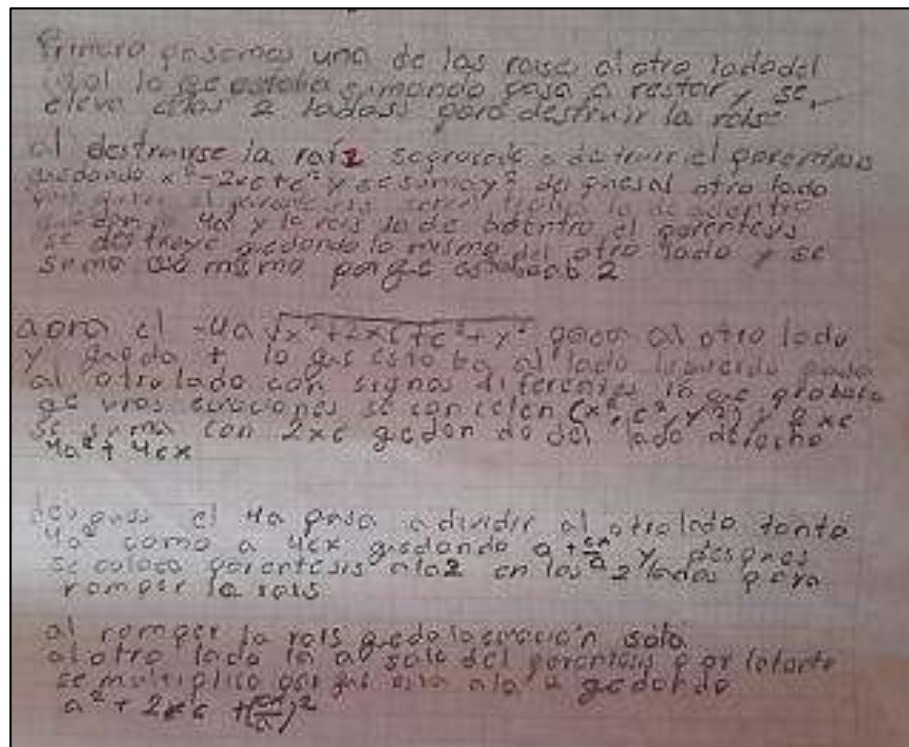 Primero pasamos una de las raises al otro lado del
igual lo qe estaba sumando pasa a restar y se
eleva a las 2 lados para destruir la rais
al destruirse la raiz se procede a destruir el parentesis
quedando x² - 2xc + c² y se suma y² despues al otro lado
4a² y la rais de adentro el parentesis
se destruye qedando lo mismo del otro lado y se
suma asi mismo porqe estaba ala 2
aora el -4a √x² + 2xc + c² + y² pasa al otro lado
y qeda + lo qe estaba al lado izquierdo pasa
al otro lado con signos diferentes lo qe
qe se cancelen (x², c², y²) y 2xc
se suma con 2xc qedando del lado derecho
4a² + 4cx
despues el 4a pasa a dividir al otro lado tanto
4a² como a 4cx qedando a + cx/a y despues
se coloca parentesis ala 2 en los 2 lados para
romper la rais
al romper la rais qeda la ecuación sola
al otro lado la a² sale del parentesis por lo tanto
se multiplica por qe esta ala 2 qedando
a² + 2xc + (cx/a)²